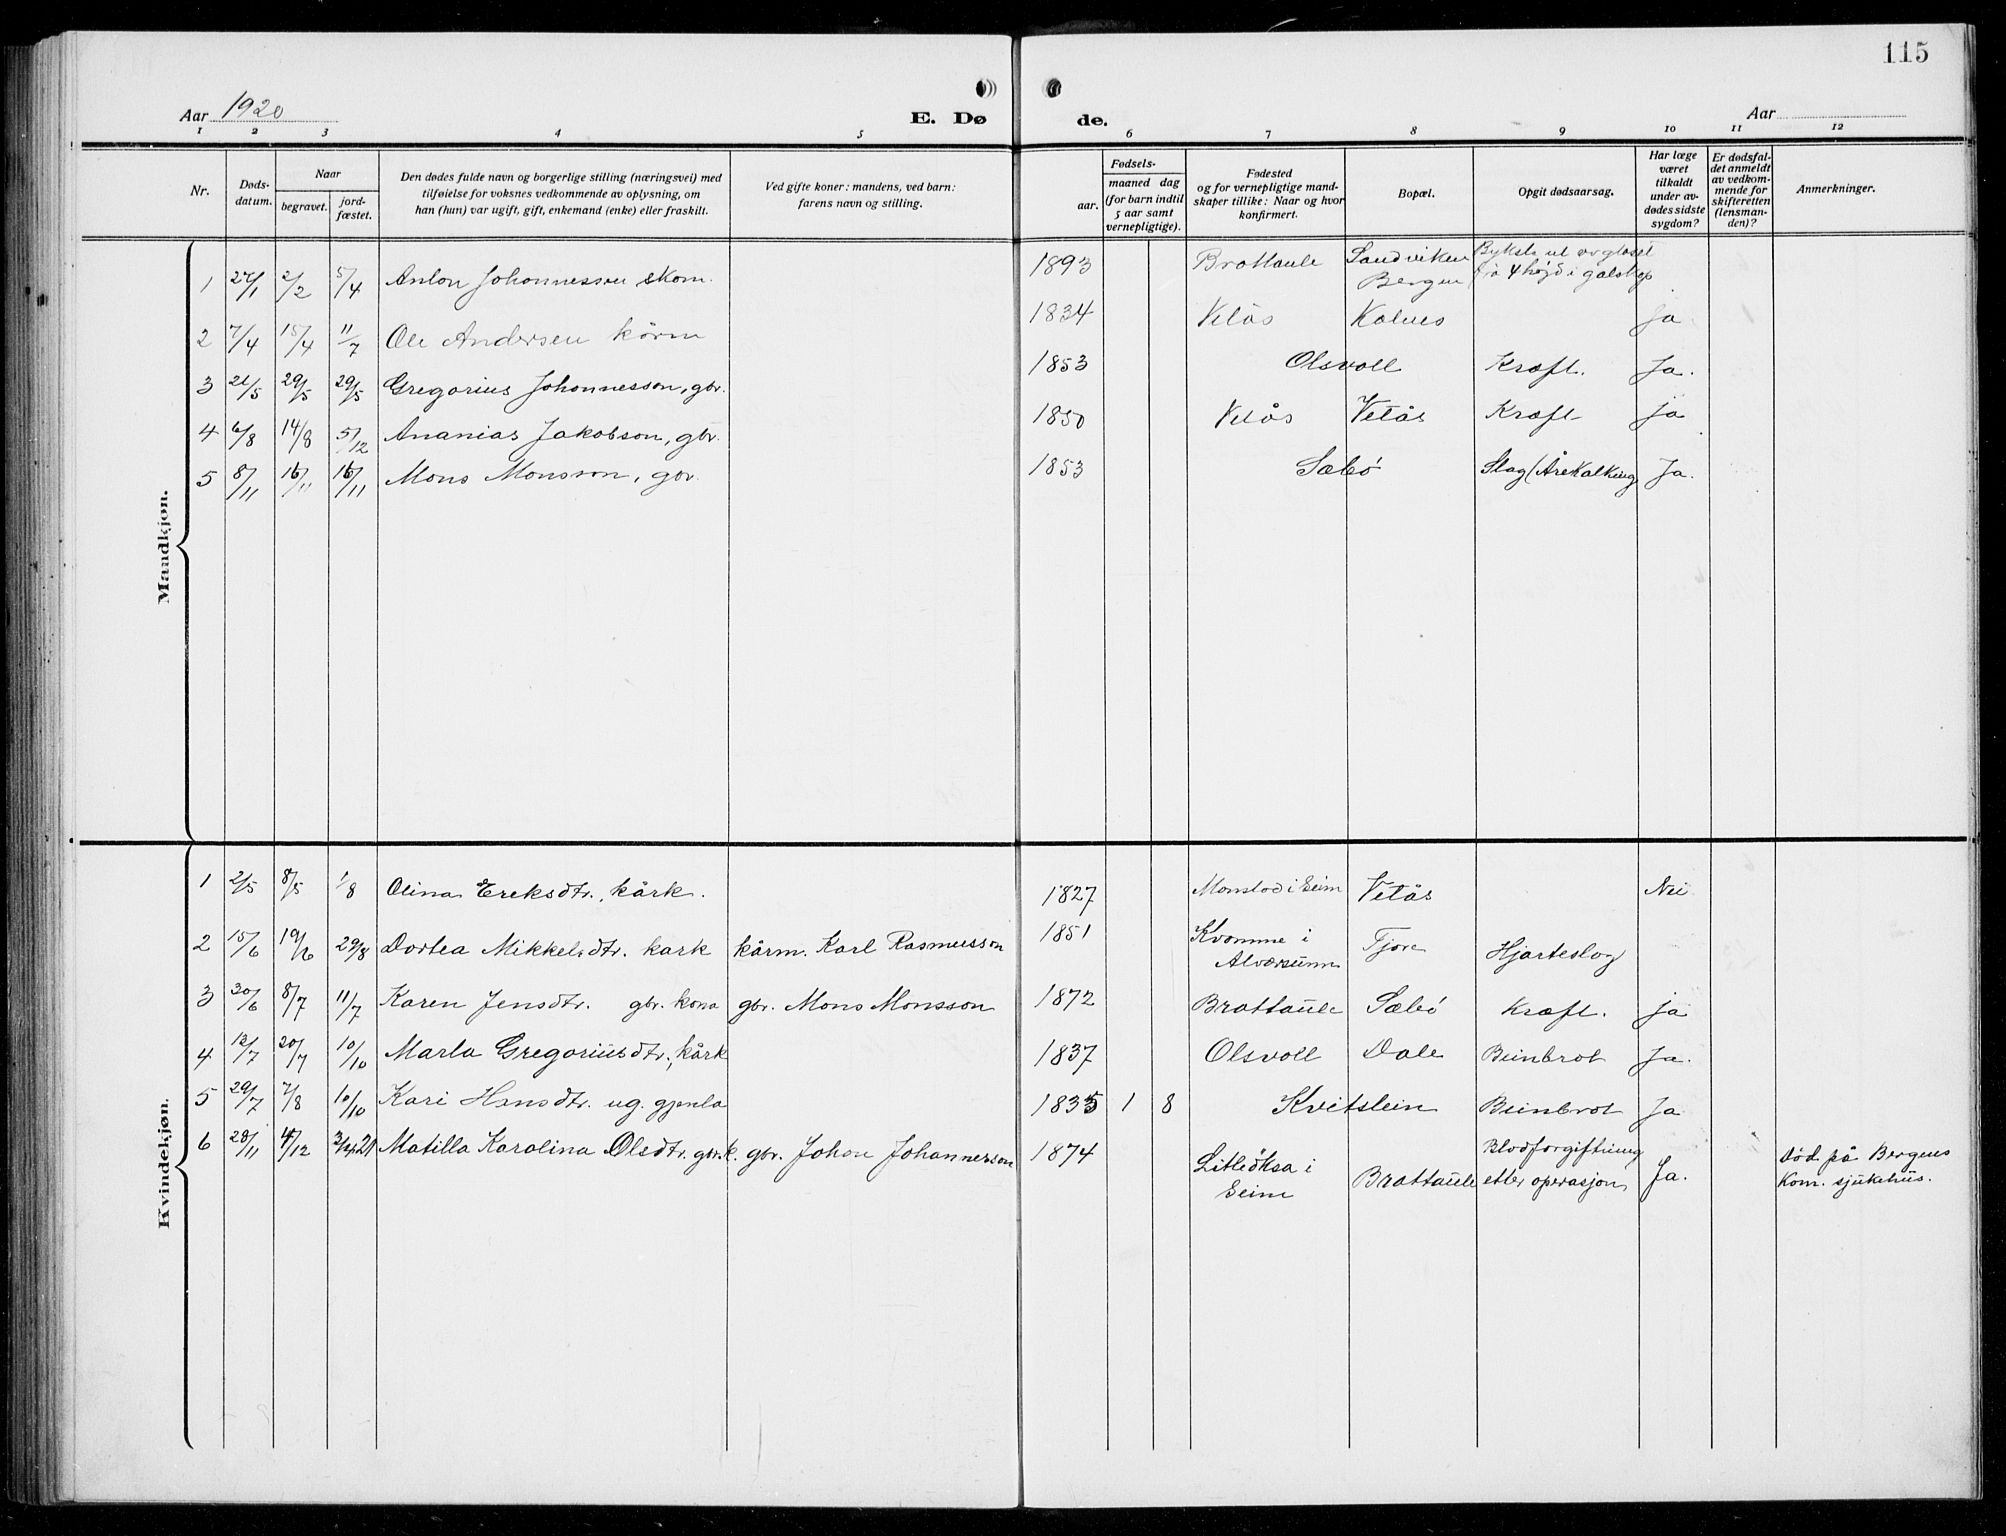 115
Aar 1920
E. Dø
de.
Aar
1 2 3 4 5 6 7 8 9 10 11 12
Nr.
Døds-
datum.
Naar
begravet.
jord-
fæstet.
Den dødes fulde navn og borgerlige stilling (næringsvei) med
tilføielse for voksnes vedkommende av oplysning, om
han (hun) var ugift, gift, enkemand (enke) eller fraskilt.
Ved gifte koner: mandens, ved barn:
farens navn og stilling.
Fødsels-
aar.
maaned dag
(for barn indtil
5 aar samt
vernepligtige).
Fødested
og for vernepligtige mand-
skaper tillike: Naar og hvor
konfirmert.
Bopæl.
Opgit dødsaarsag.
Har læge
været
tilkaldt
under av-
dødes sidste
sygdom?
Er dødsfal-
det anmeldt
av vedkom-
mende for
skifteretten
(lensman-
den)?
Anmerkninger.
Mandkjøn.
1 27/1 2/2 5/4 Anton Johannesson skom. 1893 Brattaule Sandviken Bergen
2 7/4 15/4 11/7 Ole Andersen kårm 1834 Vetås Kalnes Ja
3 21/5 29/5 29/5 Gregorius Johannesson, gbr. 1853 Olsvoll Kræft. Ja.
4 6/8 14/8 5/12 Ananias Jakobson, gbr. 1850 Vetås Vetås Kræft Ja
5 8/11 16/11 16/11 Mons Monsson, gbr. 1853 Sæbö Slag (Årekalking Ja.
Kvindekjøn.
1 2/5 8/5 1/8 Olina Ereksdtr., kårk. 1827 i Seim Vetås Nei
2 15/6 19/6 29/8 Dortea Mikkelsdtr. kark kårm. Karl Rasmusson 1851 Kvamme i Alversunn Tjore Hjarteslag
3 30/6 8/7 11/7 Karen Jensdtr. gbr. kona gbr. Mons Monsson 1872 Brattaule Sæbö Kræft. ja
4 12/7 20/7 10/10 Marta Gregoriusdtr., kårk 1837 Olsvoll Dale Beinbrot Ja.
5 29/7 7/8 10/10 Kari Hansdtr. ug. gjenta 1835 1 8 Kvitstein Beinbrot Ja
6 28/11 4/12 Matilla Karolina Olsdtr. gbr.k. gbr. Johan Johannesson 1874 Litleöksa i Seim Brattaule Blodforgiftning etter operasjon Ja. Död på Bergens Kom. sjukehus.